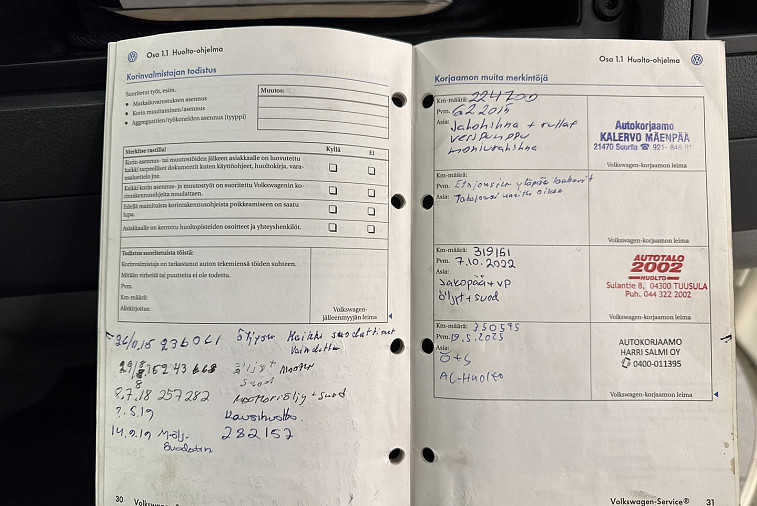 Osa 1.1 Huolto-ohjelma
Korinvalmistajan todistus
Suoritetut työt, esim.
• Matkailuvarustuksen asennus
• Korin muuttaminen/asennus
• Aggregaattien/työkoneiden asennus (tyyppi)
Muutos:
Merkitse rastilla!
Kyllä
Ei
Korin asennus- tai muutostöiden jälkeen asiakkaalle on luovutettu
kaikki tarpeelliset dokumentit kuten käyttöohjeet, huoltokirja, vara-
osaluettelo jne.
Kaikki korin asennus- ja muutostyöt on suoritettu Volkswagenin ko-
rinrakennusohjeita noudattaen.
Edellä mainituista korinrakennusohjeista poikkeamiseen on saatu
lupa.
Asiakkaalle on kerrottu huoltopisteiden osoitteet ja yhteyshenkilöt.
Todistus suoritetuista töistä:
Korinvalmistaja on tarkastanut auton tekemiensä töiden suhteen.
Mitään virheitä tai puutteita ei ole todettu.
Pvm.
Km-määrä:
Allekirjoitus:
Volkswagen-
jälleenmyyjän leima
236061 Kaikki suodattimet
Vaihdettu
243668 öljyt Moottor
Suod
?.7.18 257282 Moottoriöljy + suod
?.5.19 Kausihuolto.
14.9.19 M-öljy. 282152
Suodatin
30 Volkswagen-
Osa 1.1 Huolto-ohjelma
Korjaamon muita merkintöjä
Km-määrä: 224700
Pvm. 6.2.2015
Asia: Jakohihna + rullat
vesipumppu
moniurahihna
Autokorjaamo
KALERVO MÄENPÄÄ
21470 Suurila ☎ 921-
Volkswagen-korjaamon leima
Km-määrä:
Pvm. Etujousien yläpään laakerit
Asia:
Volkswagen-korjaamon leima
Km-määrä: 319151
Pvm. 7.10.2022
Asia:
Jakopää + VP
öljyt + suod
AUTOTALO
2002
HUOLTO
Sulantie 8, 04300 TUUSULA
Puh. 044 322 2002
Volkswagen-korjaamon leima
Km-määrä: 350595
Pvm. 19.5.2025
Asia:
Ö+S
AC-Huolto
AUTOKORJAAMO
HARRI SALMI OY
✆ 0400-011395
Volkswagen-korjaamon leima
Volkswagen-Service® 31